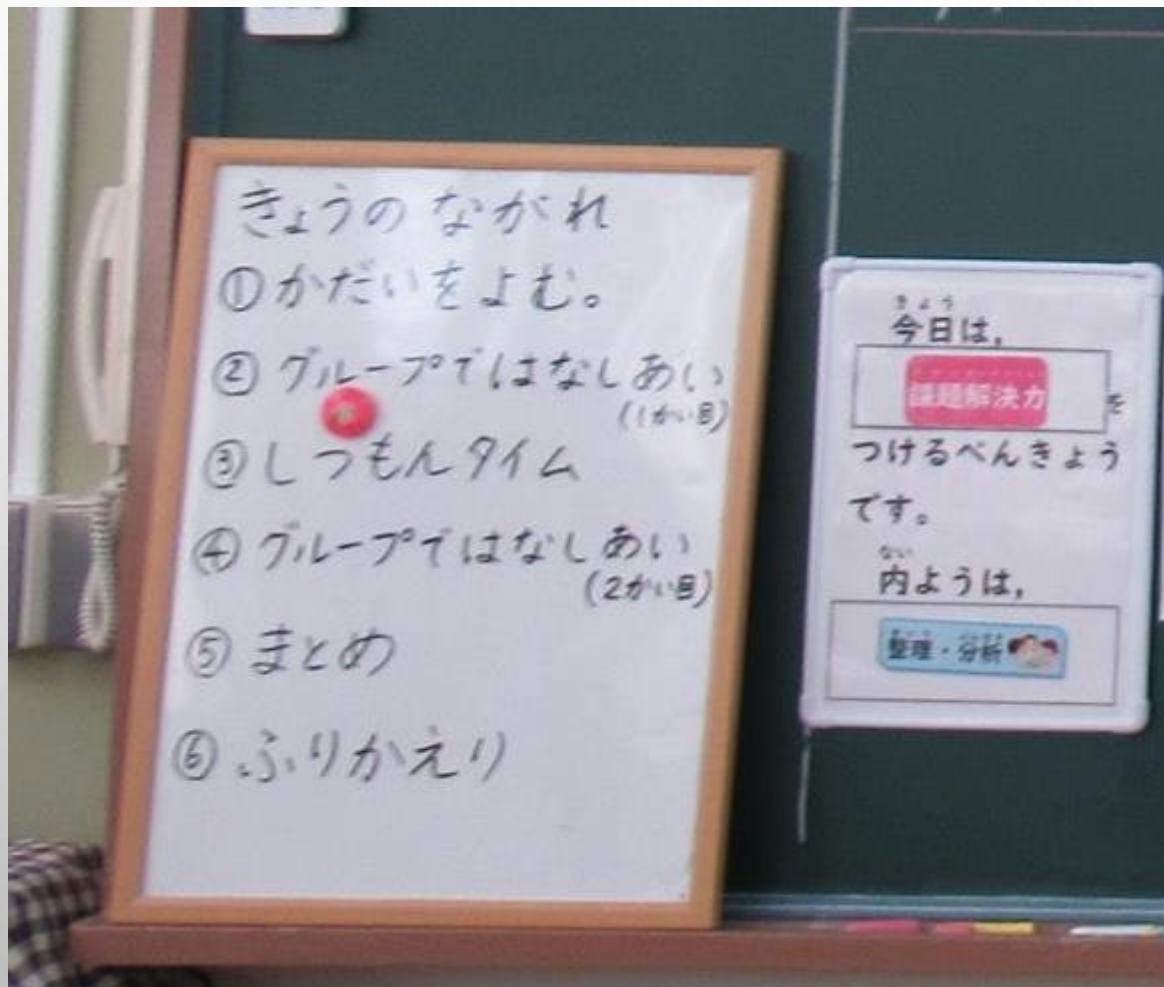 きょうのながれ
①かだいをよむ。
②グループではなしあい
(1かい目)
③しつもんタイム
④グループではなしあい
(2かい目)
⑤まとめ
⑥ふりかえり
きょう
今日は,
課題解決力
を
つけるべんきょう
です。
ない
内ようは,
整理・分析